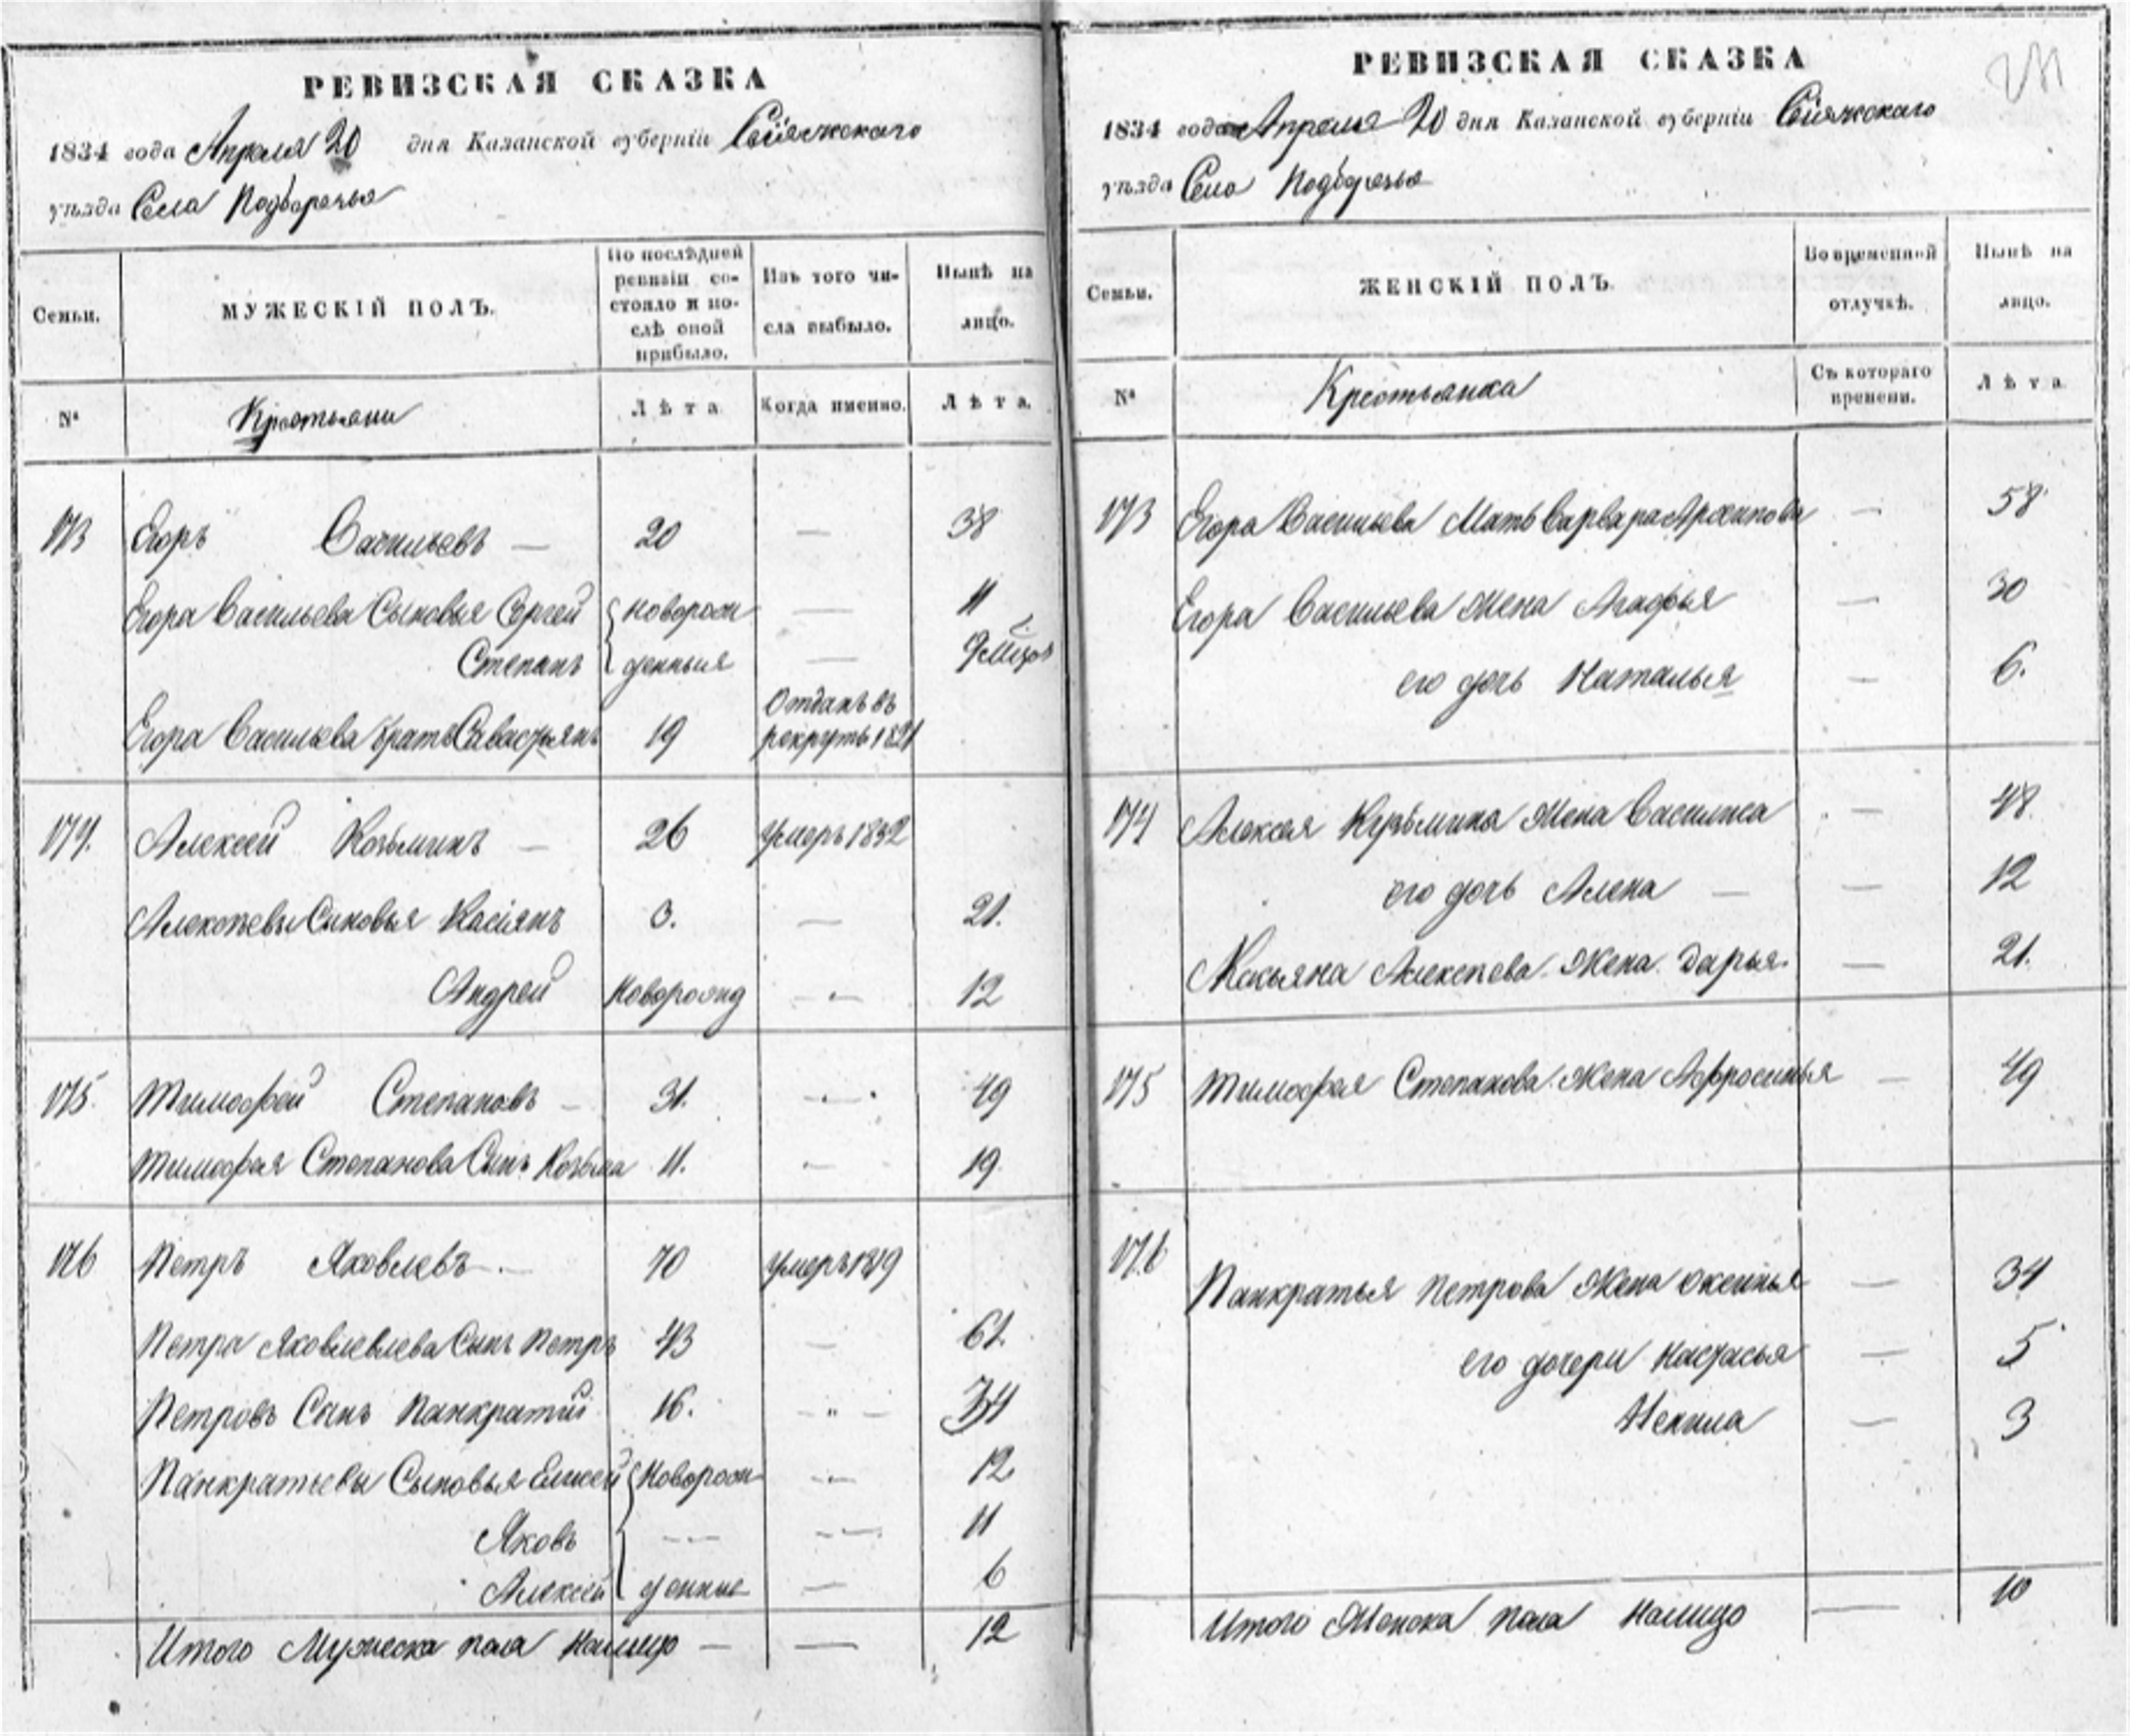 РЕВИЗСКАЯ СКАЗКА
1834 года Апреля 20 дня Казанской губерніи Свіяжскаго
уѣзда Села Подберезья
Семьи.
МУЖЕСКІЙ ПОЛЪ.
По послѣдней
ревизіи со-
стояло и по-
слѣ оной
прибыло.
Изъ того чи-
сла выбыло.
Нынѣ на
лицо.
№
Крестьяни
Лѣта
Когда именно.
Лѣта.
173 Егоръ Васильевъ — 20 — 38
Егора Васильева Сыновья Сергей { новорож — 11
Степанъ { денныя — 9 мѣсяц
Егора Васильева братъ Савастьянъ 19 Отданъ въ
рекруты 1821
174. Алексей Козьминъ — 26 умеръ 1832
Алексѣевы Сыновья Касіянъ 3. — 21.
Андрей Новорожд — 12
175 Тимофей Степановъ — 31. — 49
Тимофея Степанова Сынъ Козьма 11. — 19
176 Петръ Яковлевъ — 70 умеръ 1819
Петра Яковлевлева Сынъ Петръ 43 — 61.
Петровъ Сынъ Панкратій 16. — 34
Панкратьевы Сыновья Елисей { Новорож — 12
Яковъ — — 11
Алексей { денные — 6
Итого Мужеска пола налицо — — 12
РЕВИЗСКАЯ СКАЗКА
1834 года Апреля 20 дня Казанской губерніи Свіяжскаго
уѣзда Села Подберезья
Семьи.
ЖЕНСКІЙ ПОЛЪ.
Во временной
отлучкѣ.
Нынѣ на
лицо.
№
Крестьянка
Съ котораго
времени.
Лѣта
173 Егора Васильева Мать Варвара Архипова — 58
Егора Васильева Жена Агафья — 30
его дочь Наталья — 6.
174 Алексея Кузьмина Жена Василиса — 48
его дочь Алена — — 12
Касьяна Алексѣева Жена Дарья — 21.
175 Тимофея Степанова Жена Афросинья — 49
176
Панкратья Петрова Жена Оксинья — 34
его дочери Настасья — 5
Ненила — 3
Итого Женска пола налицо — 10